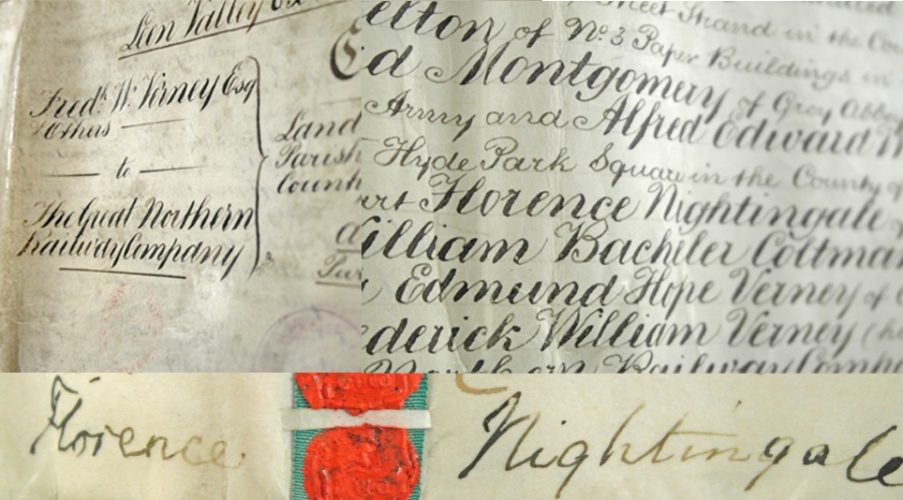 Leen Valley
Fredk. W. Verney Esq
& Others
to
The Great Northern
Railway Company
Land
Parish
County
elton of No 3 Paper Buildings in
d Montgomery of Grey Abbey
Army and Alfred Edward
Hyde Park Square in the County of
Florence Nightingale
illiam Bacheler Coltman
Edmund Hope Verney of
derick William Verney
Northern Railway Comp
Street Strand in the Cou
Florence Nightingale